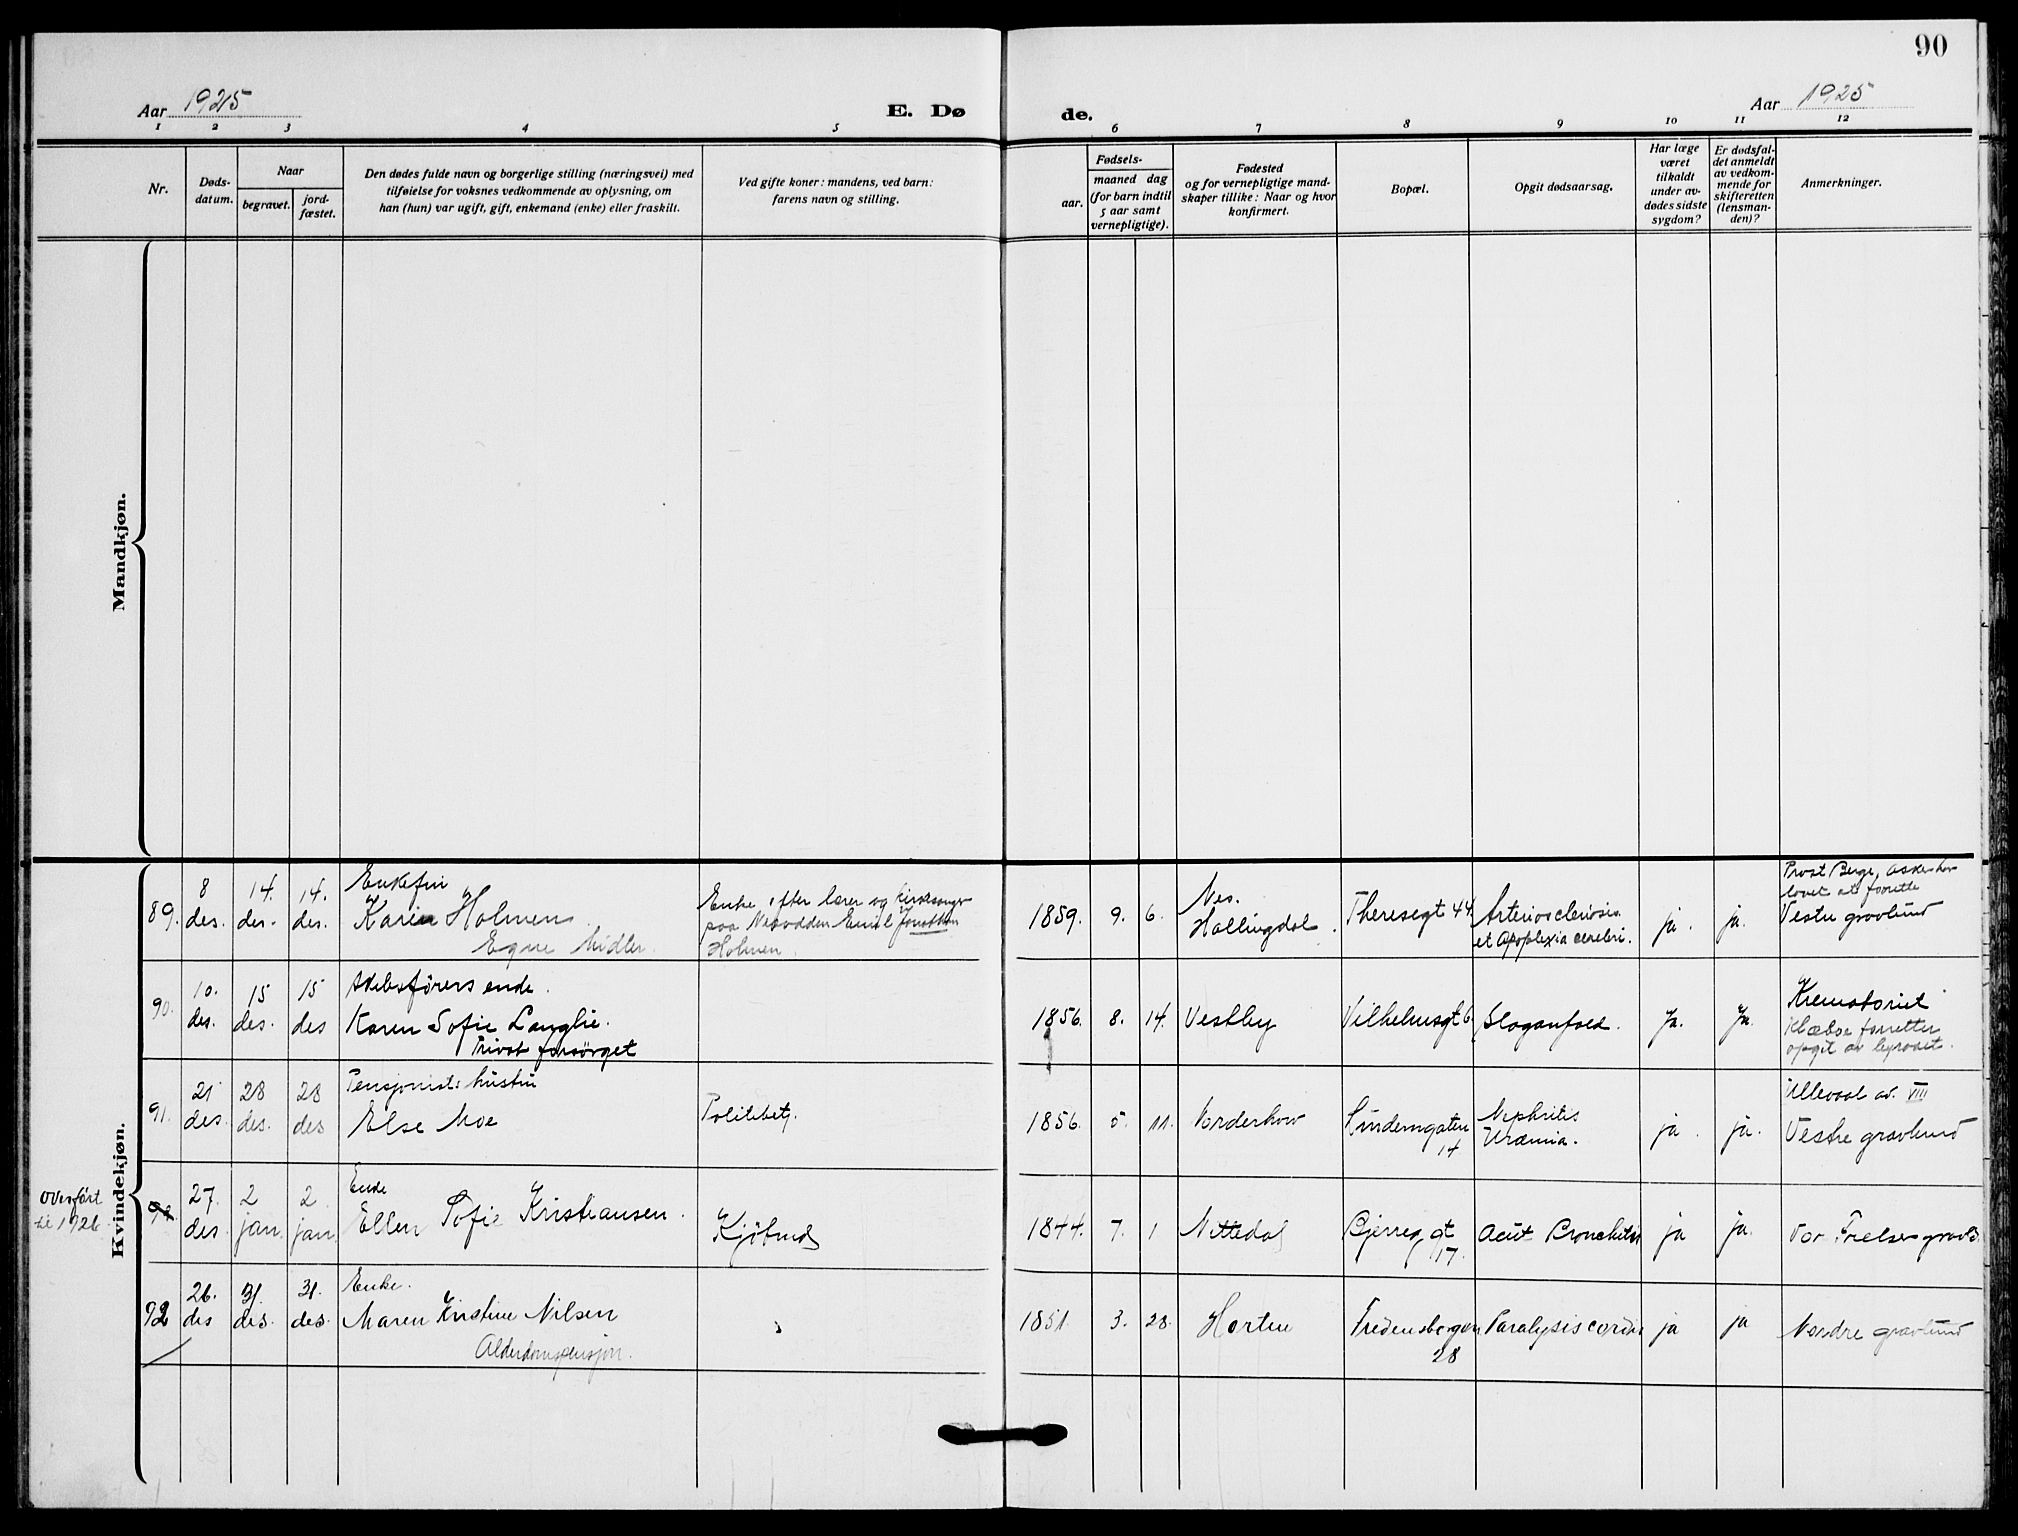 90
Aar 1925
E. Dø
de.
Aar 1925
1 2 3 4 5 6 7 8 9 10 11 12
Nr.
Døds-
datum.
Naar
begravet.
jord-
fæstet.
Den dødes fulde navn og borgerlige stilling (næringsvei) med
tilføielse for voksnes vedkommende av oplysning, om
han (hun) var ugift, gift, enkemand (enke) eller fraskilt.
Ved gifte koner: mandens, ved barn:
farens navn og stilling.
Fødsels-
aar.
maaned dag
(for barn indtil
5 aar samt
vernepligtige).
Fødested
og for vernepligtige mand-
skaper tillike: Naar og hvor
konfirmert.
Bopæl.
Opgit dødsaarsag.
Har læge
været
tilkaldt
under av-
dødes sidste
sygdom?
Er dødsfal-
det anmeldt
av vedkom-
mende for
skifteretten
(lensman-
den)?
Anmerkninger.
Mandkjøn.
Kvindekjøn.
89.
8
des.
14.
des.
14.
des.
Enkefru
Karen Holmen
Egne midler.
Enke efter lærer og kirkesanger
paa Nesodden Emil Jonathan
Holmen.
1859. 9. 6.
Nes.
Hallingdal.
Theresegt 44
Arteriosclerosis.
et Apoplexia cerebri.
ja.
ja.
Prost Berge, Asker har
lovet at forrette
Vestre gravlund
90.
10.
des.
15
des.
15
des
enke.
Karen Sofie Langlie.
Privat forsørget
1856. 8. 14.
Vestby
Vilhelmsgt 6.
Slaganfald.
Ja.
Ja.
Krematoriet
Klæboe forretter
opgit av byraaet.
91.
21
des.
28
des.
28
des
Pensjonists hustru
Else Moe
Politibetj.
1856. 5. 11.
Norderhov
Lindemgaten
14
Nephritis
Uræmia.
ja.
ja.
Ullevaal av. VIII
Vestre gravlund
overført
til 1926.
92.
27.
des.
2
jan.
2
jan
Enke
Ellen Sofie Kristiansen.
Kjøbmd
1844. 7. 1
Nittedal
Bjerreg gt
17.
Acut Bronchitis
ja
ja.
Vor Frelsers gravl.
92
26.
des
31.
des.
31.
des.
Enke.
Maren Kristine Nilsen
Alderdomspensjon.
1851. 3. 28.
Horten
Fredensborgvn
28
Paralysis cordis
ja
ja
Nordre gravlund